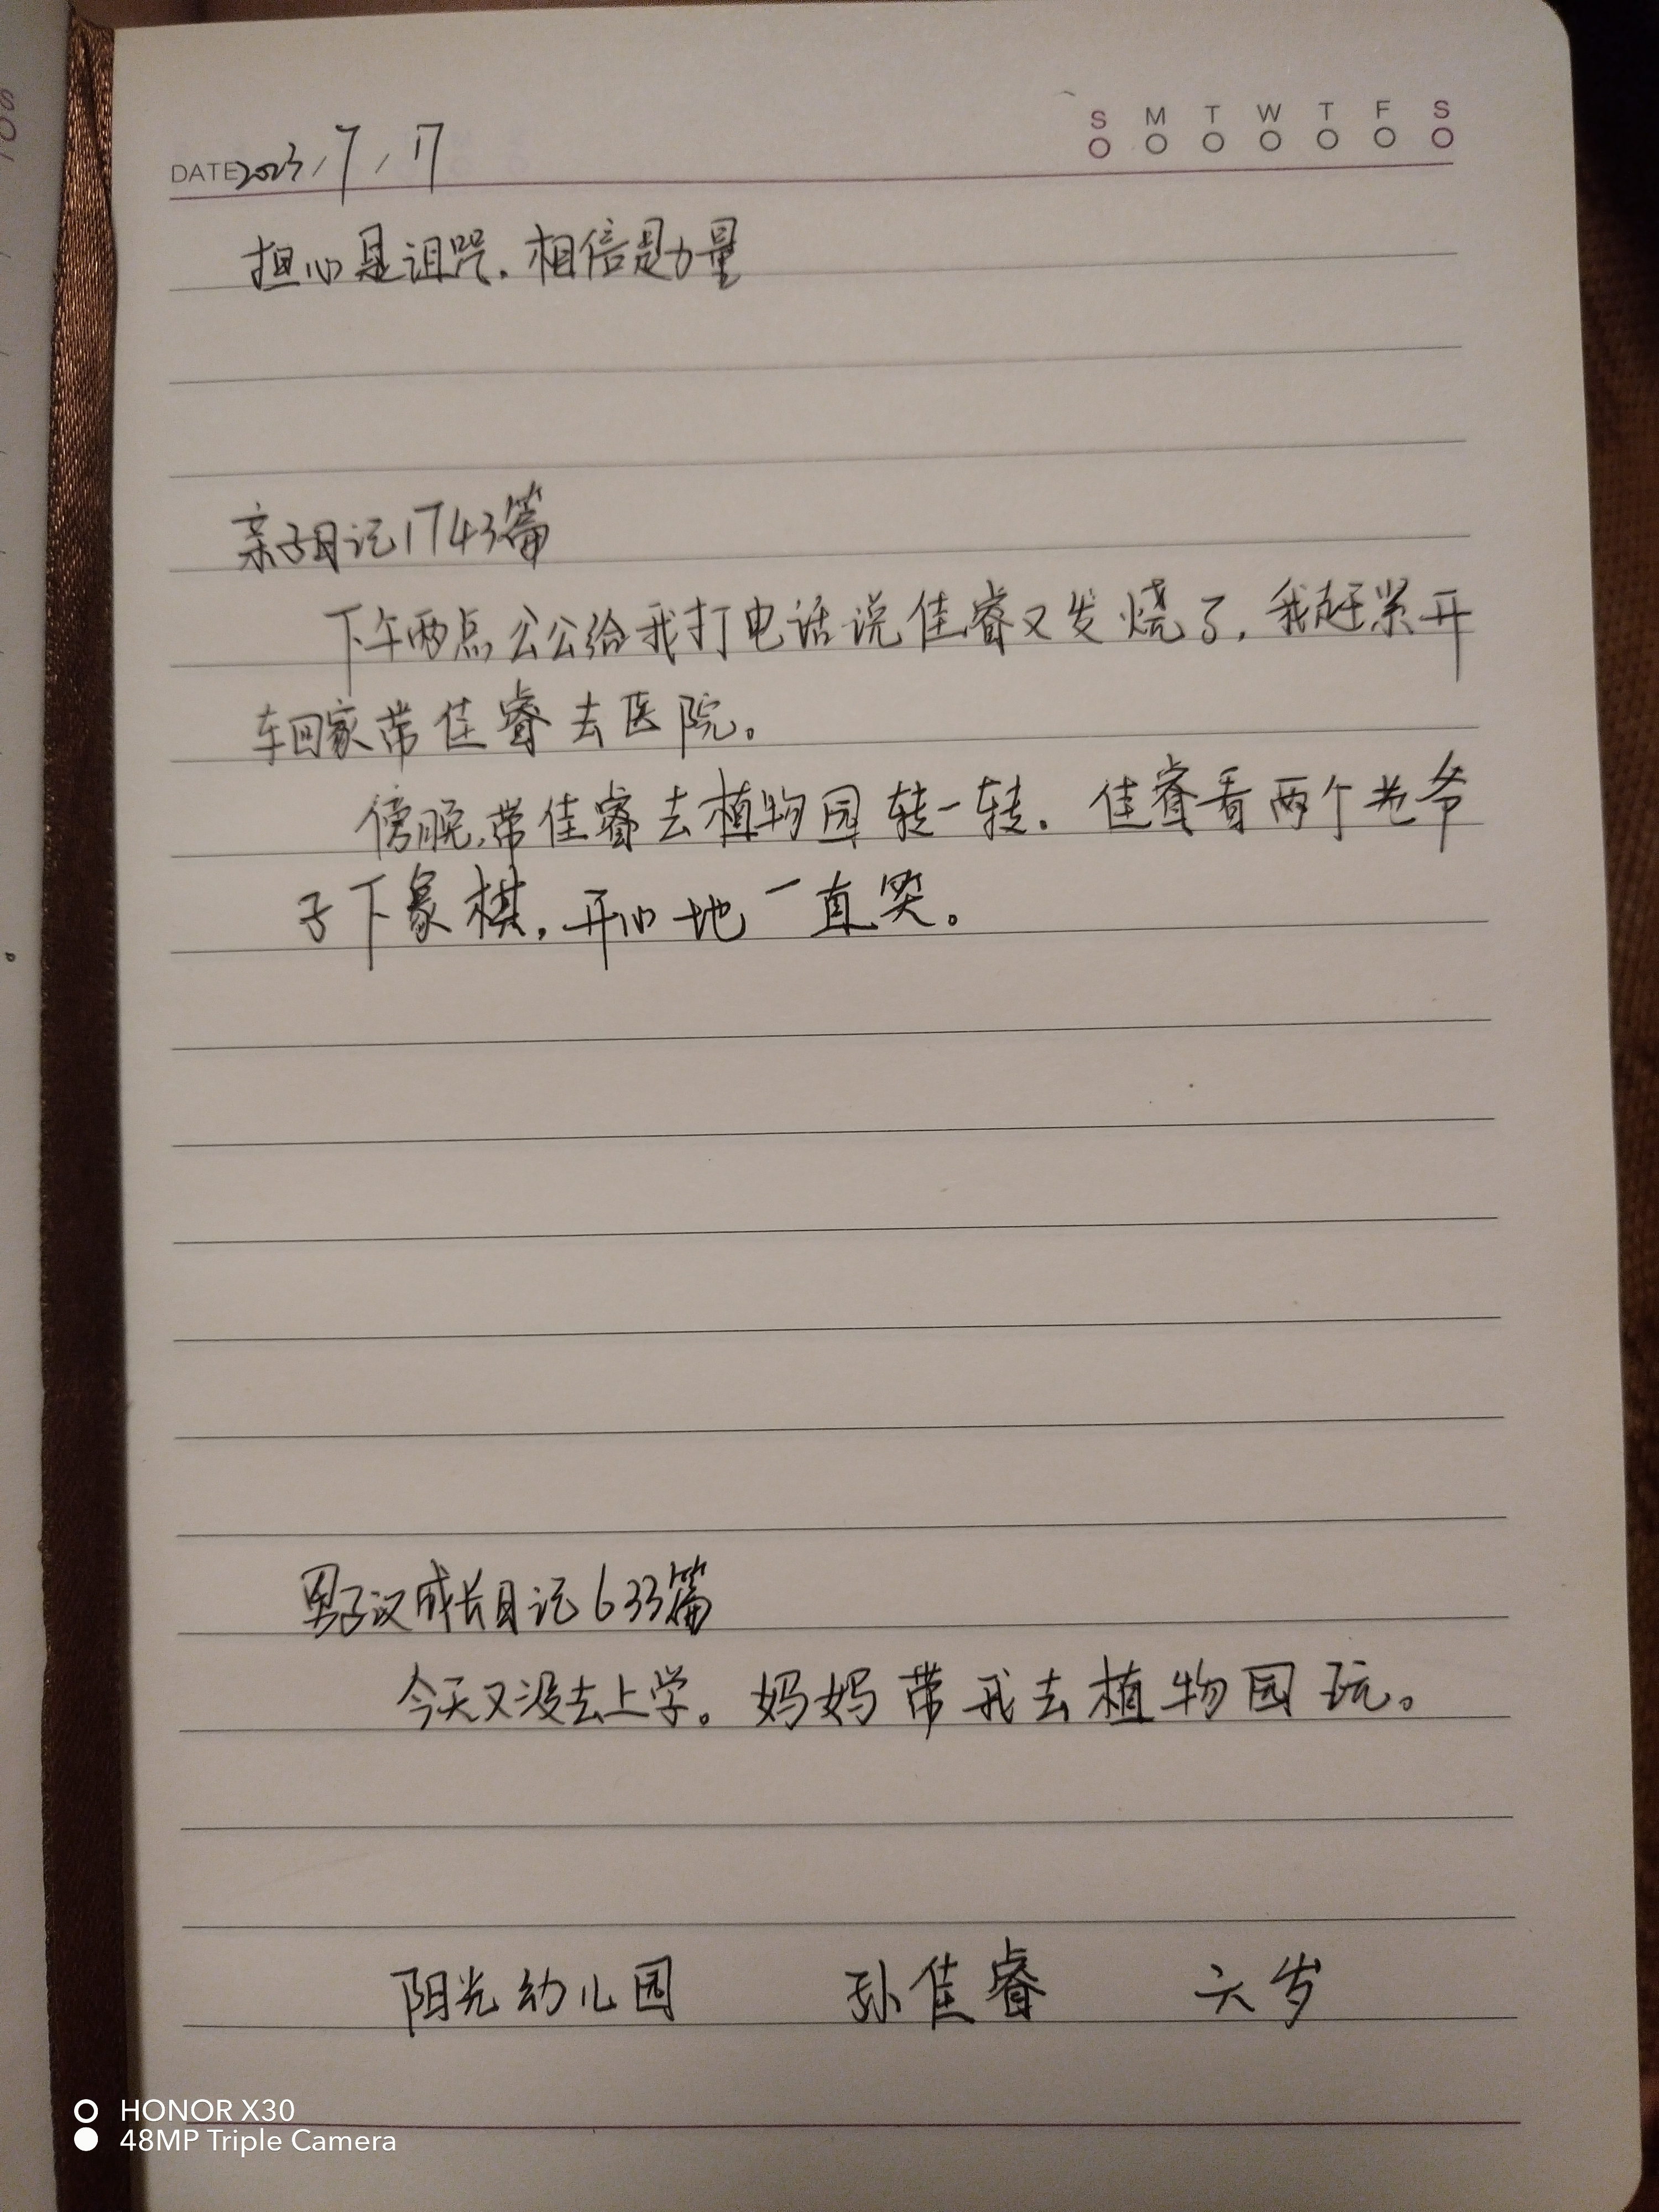 S M T W T F S
DATE 2023/7/17
担心是诅咒.相信是力量
亲子日记1743篇
下午两点公公给我打电话说佳睿又发烧了,我赶紧开
车回家带佳睿去医院。
傍晚,带佳睿去植物园转一转.佳睿看两个老爷
子下象棋,开心地一直笑。
男子汉成长日记633篇
今天又没去上学。妈妈带我去植物园玩。
阳光幼儿园 孙佳睿 六岁
HONOR X30
48MP Triple Camera